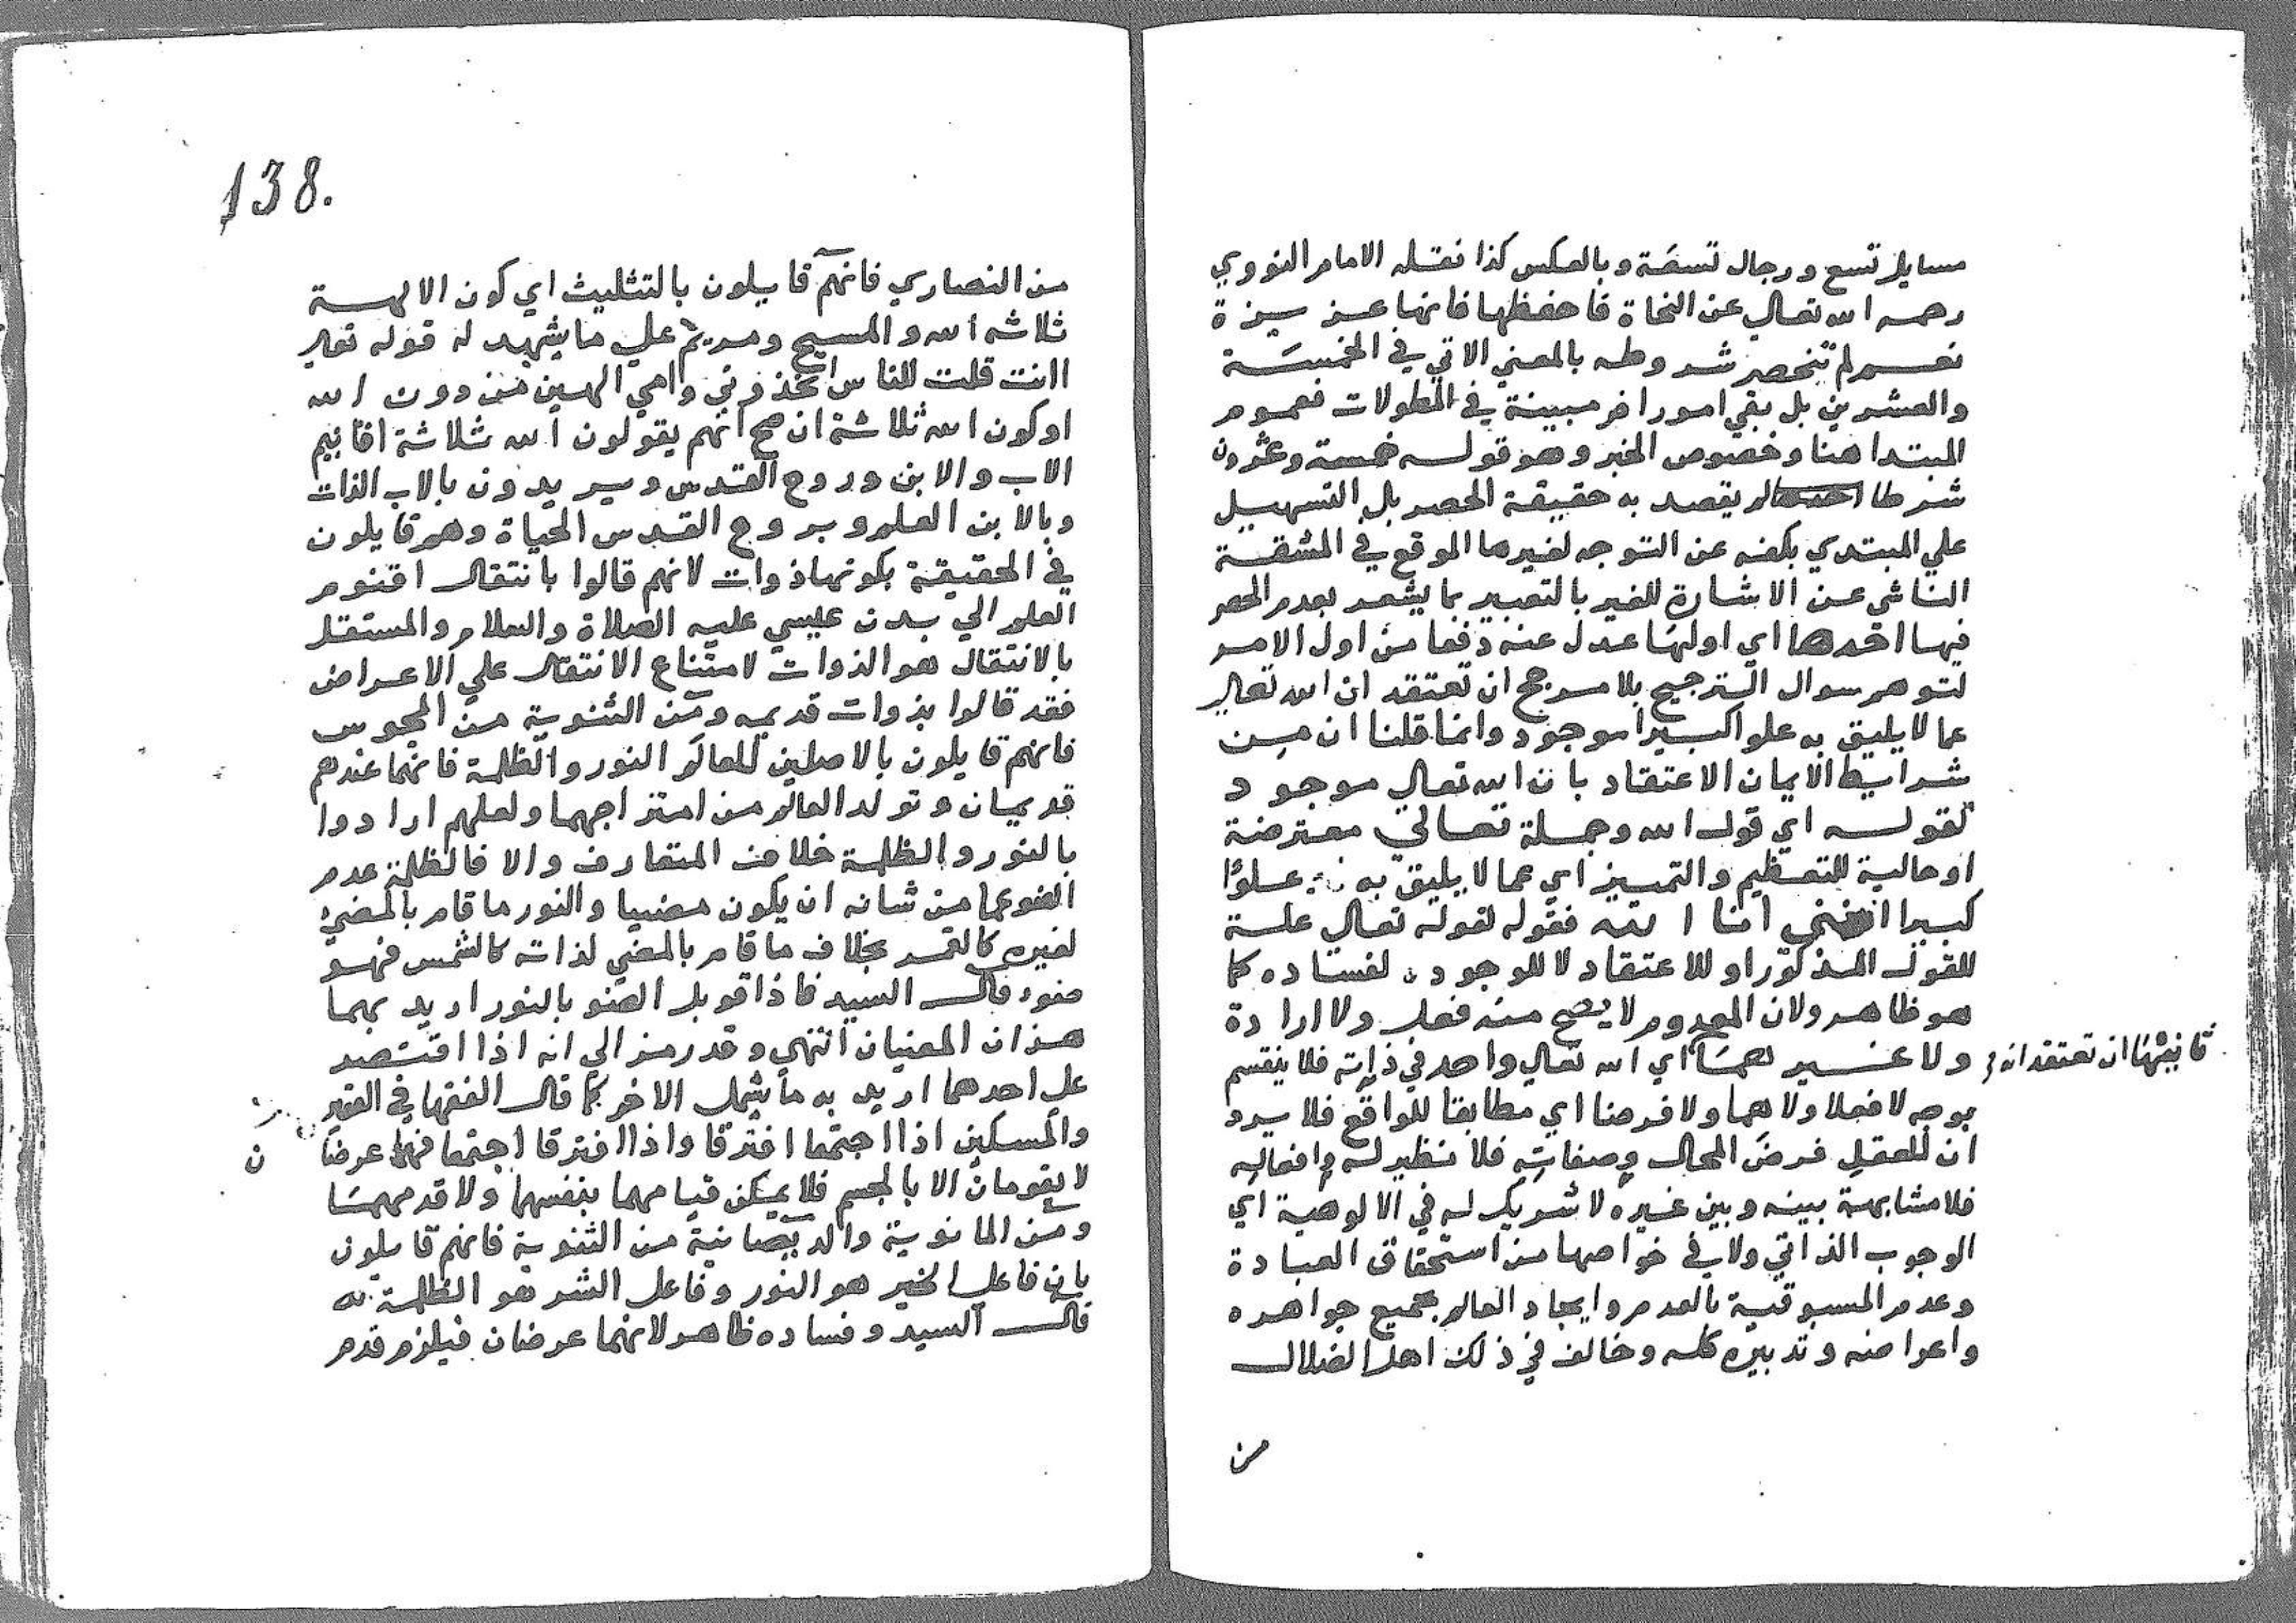 مسايل تسع ورجال تسعة وبالعكس كذا نقله الامام النووي
رحمه الله تعالي عن النحاة فاحفظها فانها عزيزة
نعم لم تنحصر شروطه بالمعني الاتي في الخمسة
والعشرين بل بقي امور اخر مبينة في المطولات فعموم
المبتدا هنا وخصوص الخبر وهو قوله خمسة وعشرون
شرطا لم يقصد به حقيقة الحصر بل التسهيل
علي المبتدي بكفه عن التوجه لغيرها الموقع في المشقة
الناشي عن الاشارة للغير بالتعبير بما يشعر بعدم الحصر
فيها احدها اي اولها عدل عنه دفعا من اول الامر
لتوهم سوال الترجيح بلا مرجح ان تعتقد ان الله تعالي
عما لا يليق به علوا كبيرا موجود وانما قلنا ان من
شرايط الايمان الاعتقاد بان الله تعالي موجود
لقوله اي قول الله وجملة تعالي معترضة
او حالية للتعظيم والتمييز اي عما لا يليق به علوا
كبيرا انني انا الله فقوله لقوله تعالي علة
للقول المذكور او للاعتقاد لا للوجود لفساده كما
هو ظاهر ولان المعدوم لا يصح منه فعل ولا ارادة
ولا غيرهما اي الله تعالي واحد في ذاته فلا ينقسم
ثانيها ان تعتقد انه
بوجه لا فعلا ولا وهما ولا فرضا اي مطابقا للواقع فلا يرد
ان للعقل فرض المحال وصفاته فلا نظير له وافعاله
فلا مشابهة بينه وبين غيره لا شريك له في الالوهية اي
الوجوب الذاتي ولا في خواصها من استحقاق العبادة
وعدم المسبوقية بالعدم وايجاد العالم بجميع جواهره
واعراضه وتدبيره كله وخالف في ذلك اهل الضلال
من
138.
من النصاري فانهم قايلون بالتثليث اي كون الالهة
ثلاثه الله والمسيح ومريم علي ما يشهد له قوله تعالي
اانت قلت للناس اتخذوني وامي الهين من دون الله
او كون الله ثلاثة ان صح انهم يقولون الله ثلاثة اقانيم
الاب والابن وروح القدس ويريدون بالاب الذات
وبالابن العلم وبروح القدس الحياة وهم قايلون
في الحقيقة بكونها ذوات لانهم قالوا بانتقال اقنوم
العلم الي بدن عيسي عليه الصلاة والسلام والمستقل
بالانتقال هو الذوات لامتناع الانتقال علي الاعراض
فقد قالوا بذوات قديمه ومن الثنوية من المجوس
فانهم قايلون بالاصلين للعالم النور والظلمة فانهما عندهم
قديمان وتولد العالم من امتزاجهما ولعلهم ارادوا
بالنور والظلمة خلاف المتعارف والا فالظلمة عدم
الضو عما من شانه ان يكون مضيا والنور ما قام بالمضي
لغيره كالقمر بخلاف ما قام بالمضي لذاته كالشمس فهو
ضوء قال السيد فاذا قوبل الضو بالنور اريد بهما
هذان المعنيان انتهي وقد رمز الي انه اذا اقتصر
علي احدهما اريد به ما يشمل الاخر كما قال الفقها في الفقير
والمسكين اذا اجتمعا افترقا واذا افترقا اجتمعا فهما عرضا
ن
لا يقومان الا بالجسم فلا يمكن قيامهما بنفسهما ولا قدمهما
ومن المانوية والديصانية من الثنوية فانهم قايلون
بان فاعل الخير هو النور وفاعل الشر هو الظلمة
قال السيد وفساده ظاهر لانهما عرضان فيلزم قدم